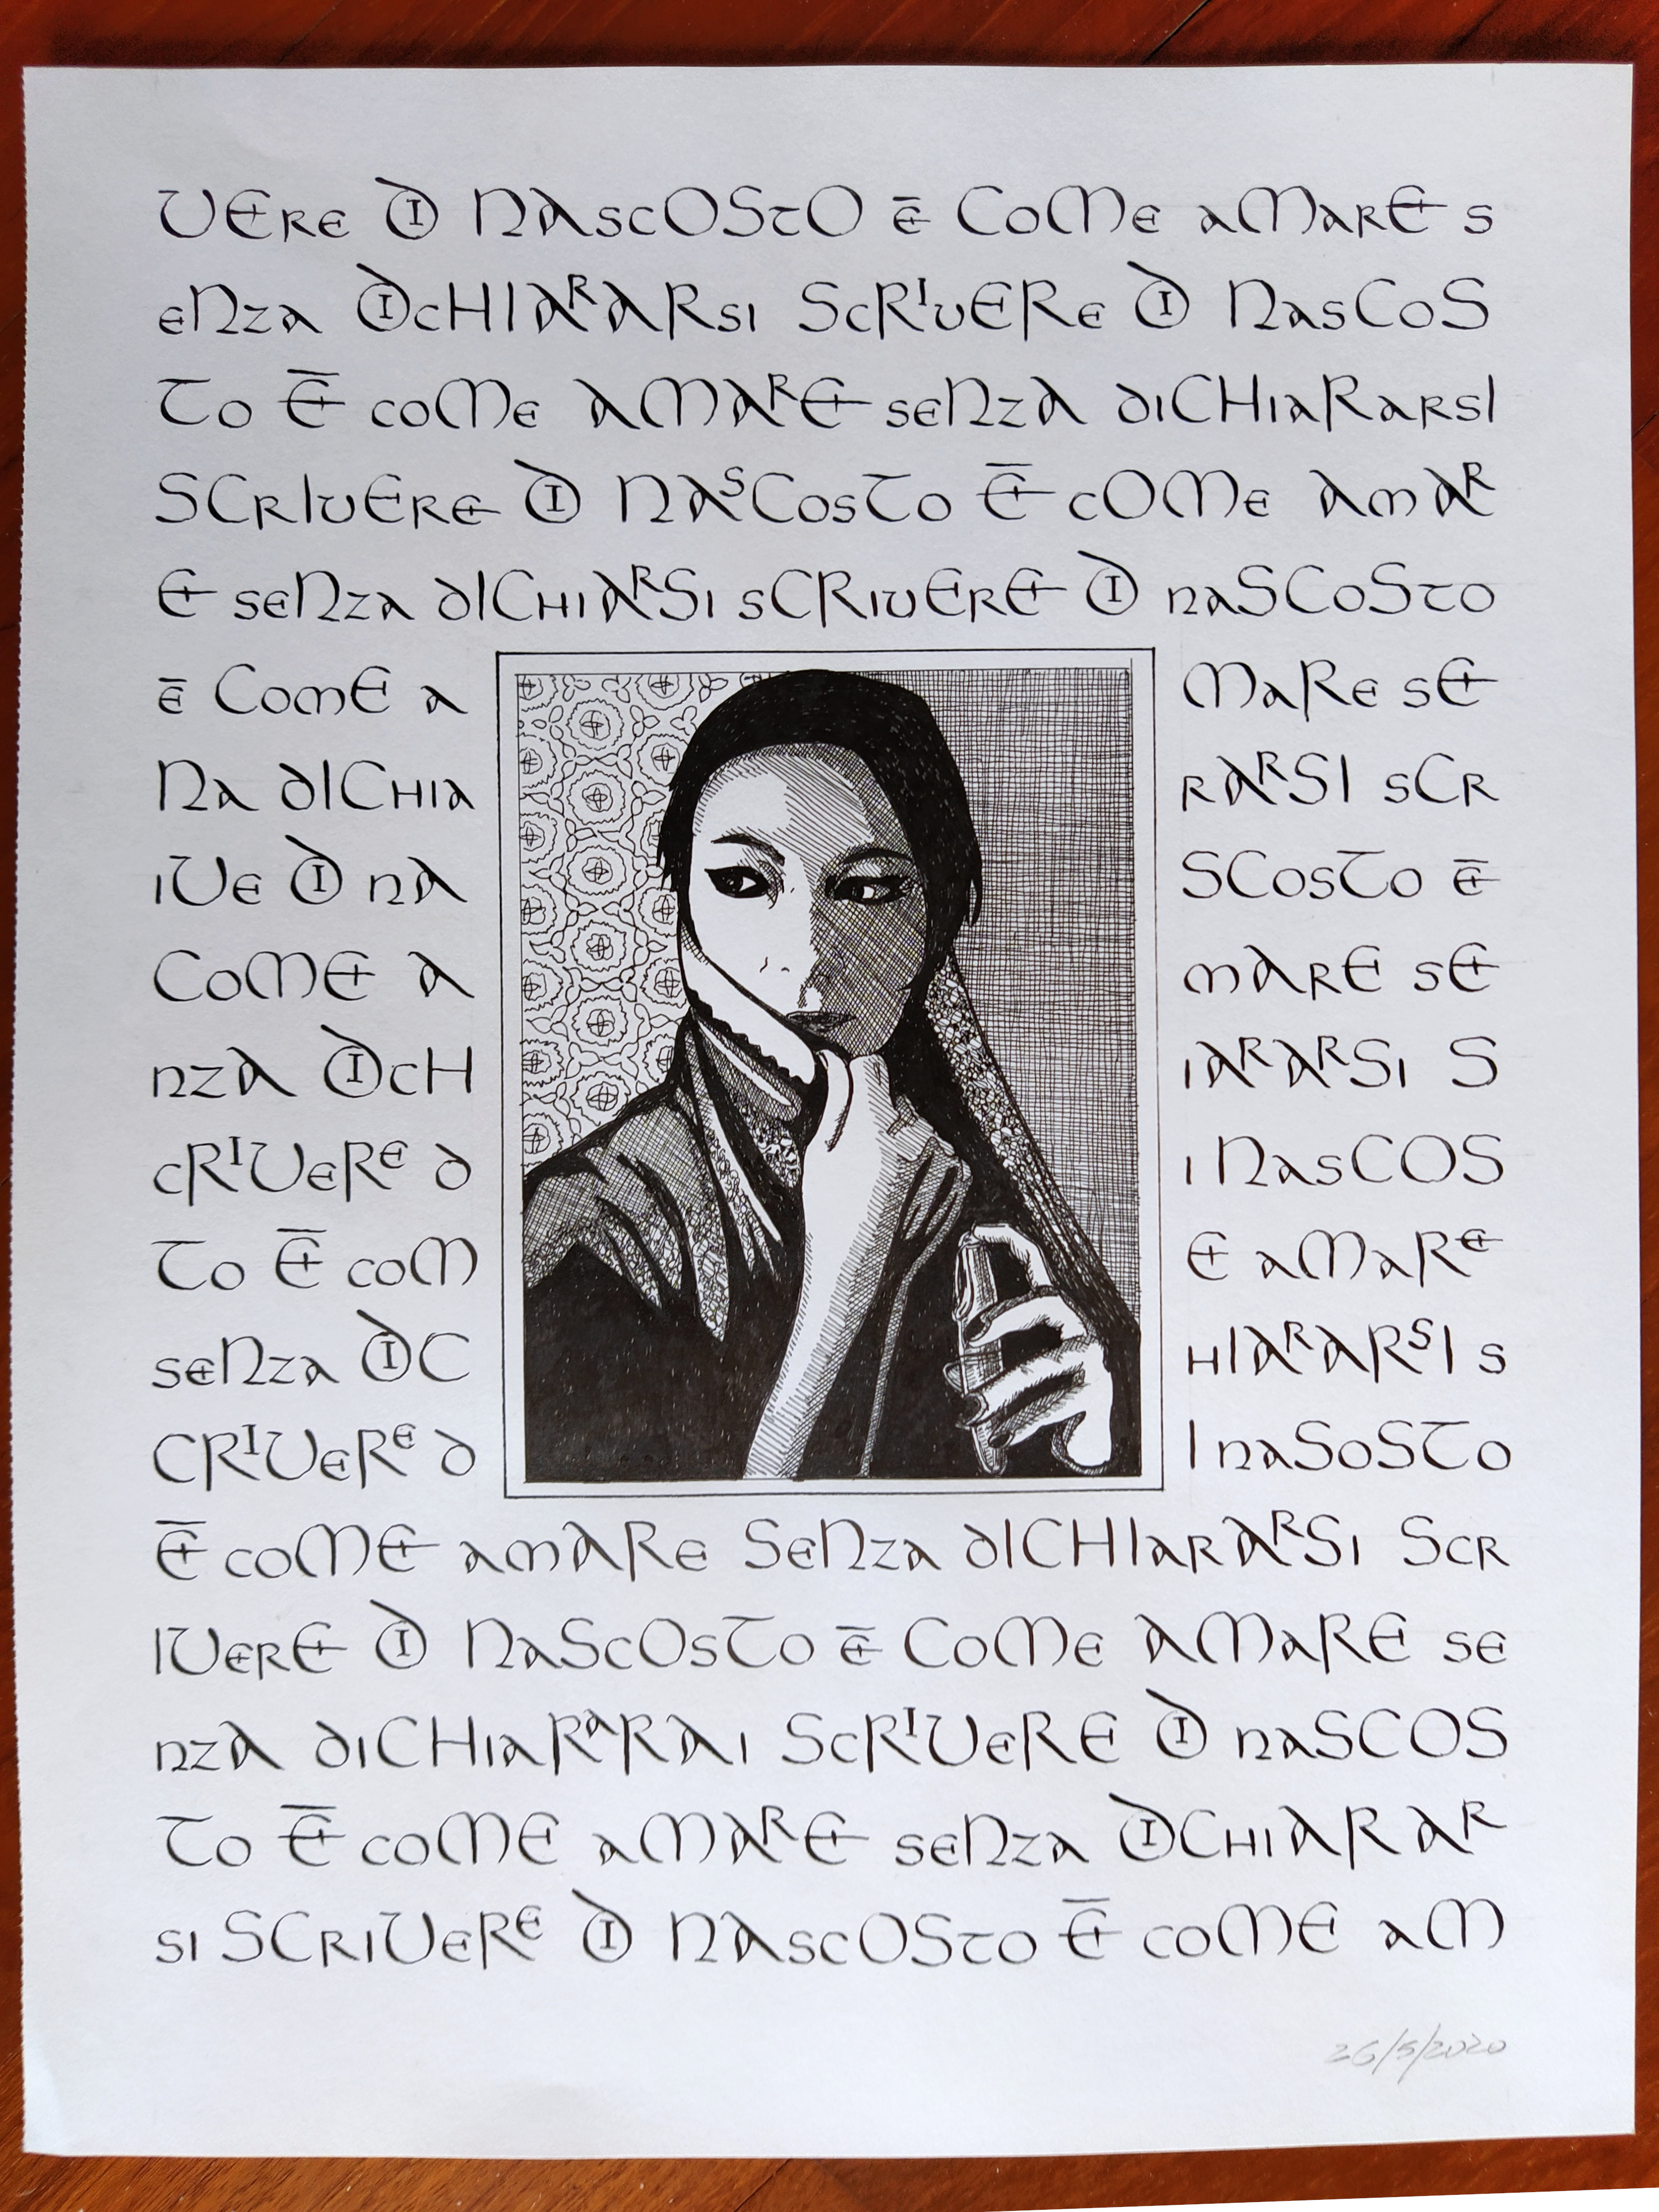 VERE DI NASCOSTO È COME AMARE S
ENZA DICHIARARSI SCRIVERE DI NASCOS
TO È COME AMARE SENZA DICHIARARSI
SCRIVERE DI NASCOSTO È COME AMAR
E SENZA DICHIARSI SCRIVERE DI NASCOSTO
È COME A MARE SE
NA DICHIA RARSI SCR
IVE DI NA SCOSTO È
COME A MARE SE
NZA DICH IARARSI S
CRIVERE D I NASCOS
TO È COM E AMARE
SENZA DIC HIARARSI S
CRIVERE D I NASOSTO
È COME AMARE SENZA DICHIARARSI SCR
IVERE DI NASCOSTO È COME AMARE SE
NZA DICHIARARAI SCRIVERE DI NASCOS
TO È COME AMARE SENZA DICHIARAR
SI SCRIVERE DI NASCOSTO È COME AM
26/5/2020